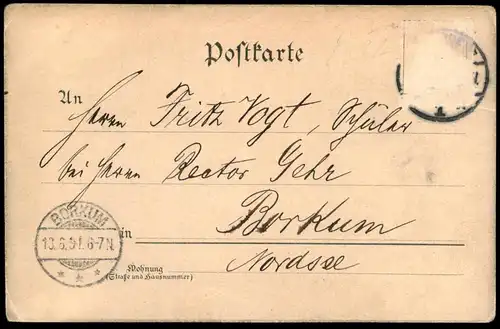 Postkarte
An Herrn Fritz Vogt, Schüler
bei Herrn Rector Gehr
BORKUM
in Borkum
Nordsee
Wohnung
(Straße und Hausnummer)